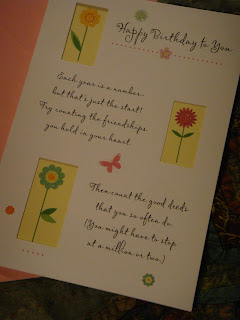 Happy Birthday to You
Each year is a number
but that's just the start!
Try counting the friendships
you hold in your heart.
Then count the good deeds
that you so often do.
(You might have to stop
at a million or two.)